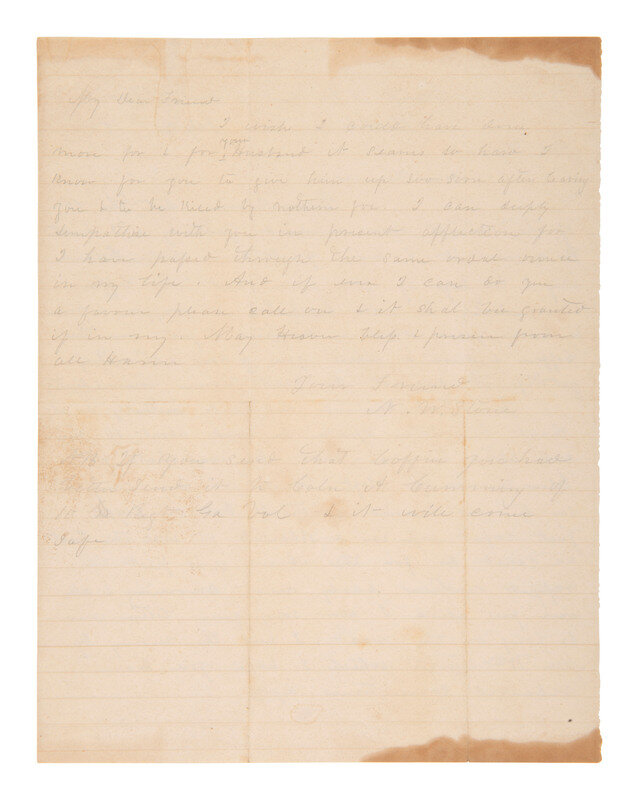 My Dear Friend
I wish I could have done
more for & for your Husband it seams to hard I
know for you to give him up soo soon after
you & to be Kiled by nothin for. I can deeply
simpathise with you in present affliction for
I have passed through the same ordeal
in my life. And if ever I can do you
a favour please call on & it shal be granted
if in my. May Heaven Bless & from
all Harm
Your Friend
N.
If you send that Coffin you had
send it to Coln A Cumming of
Regt Ga Vol & it will come
Safe